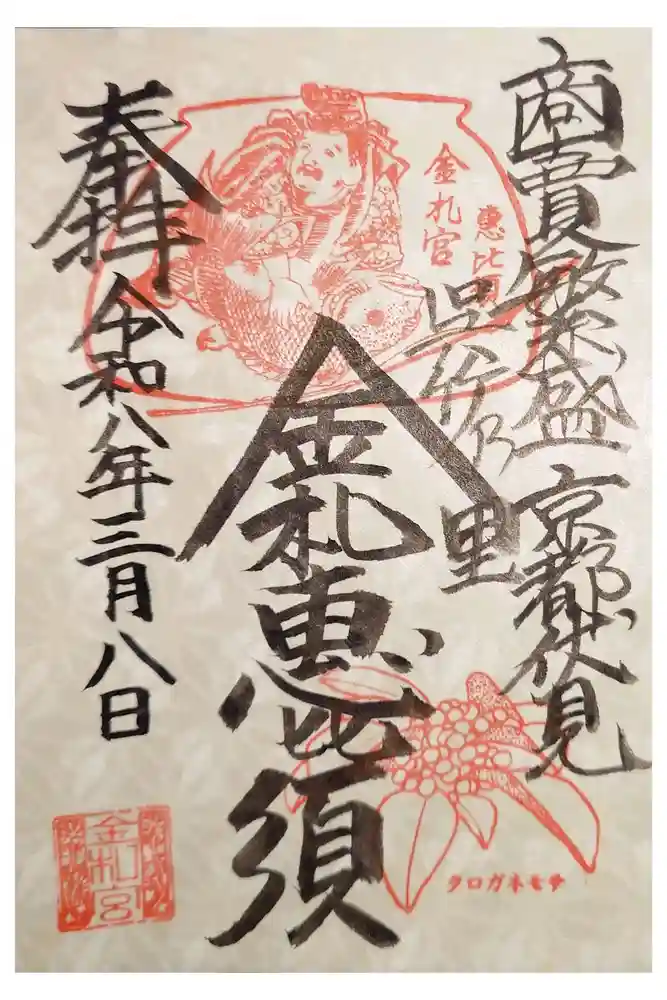 商賣繁盛 京都伏見
呉竹乃里
金札宮
惠比須
金札恵比須
奉拝
令和八年三月八日
クロガネモチ
金札宮